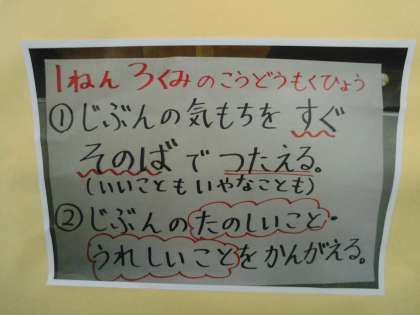 1ねん3くみのこうどうもくひょう
①じぶんの気もちをすぐ
そのばでつたえる。
(いいこともいやなことも)
②じぶんのたのしいこと・
うれしいことをかんがえる。